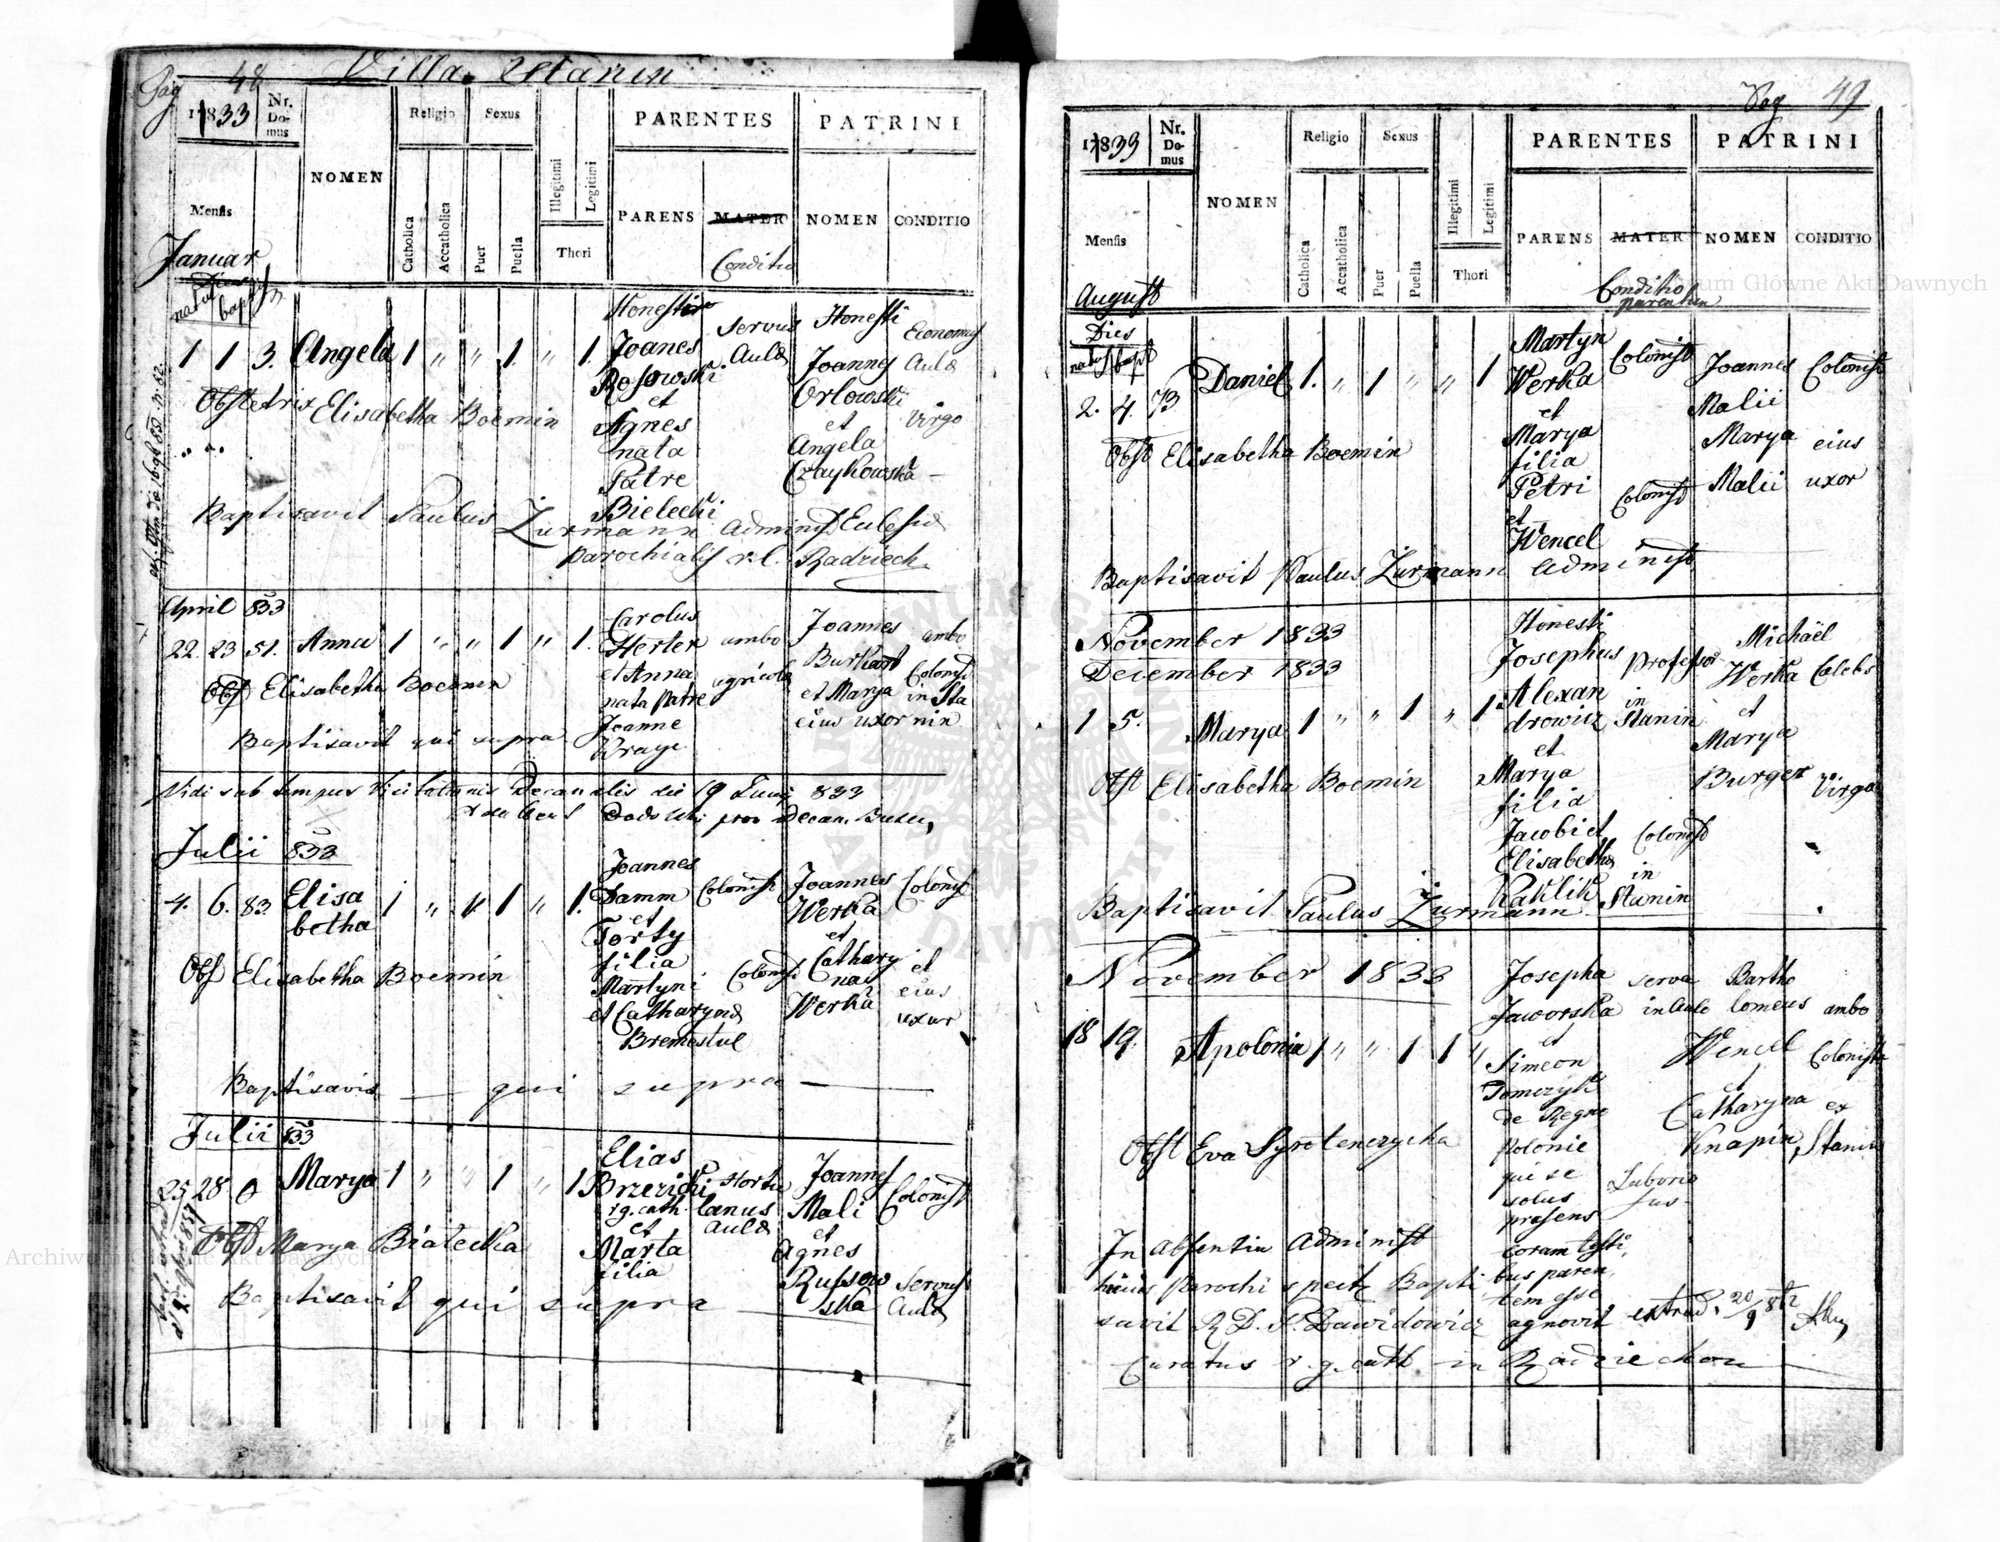 Pag 48 Villa Stanin
1833 Nr. Domus NOMEN Religio Sexus PARENTES PATRINI
Mensis Catholica Accatholica Puer Puella Illegitimi Legitimi Thori PARENS MATER NOMEN CONDITIO
Januar Conditio
Dies
natus baptis
Honesti Honesti
servus Economus
1 1 3. Angela 1 " " 1 " 1. Joanes Aulæ Joannes Aulæ
Rosowski Orlowski
Obstetrix Elisabetha Boemin et et Virgo
Agnes Angela
nata Czaykowska
Patre
Bielecki
Baptisavit Paulus Zurmann Administ Eclesiæ
parochialis r.l. Radziech
April 833
22. 23 51. Anna 1 " " 1 " 1. Carolus Herter ambo Joannes ambo
Burkart Colonist
Obst Elisabetha Boemin et Anna agricolæ et Marya in Sta
nata Patre eius uxor nin
Baptisavit qui supra Joanne
Wraye
Vidi sub tempus Decanalis die 19 Junij 833
Julii 833
4. 6. 83. Elisa betha 1 " " 1 " 1. Joannes Damm Colonist Joannes Werka Colonist
et et
Forty Cathary
filia na et
Obst Elisabetha Boemin Martyni Colonist Werka eius
et Catharynæ uxor
Bremestul
Baptisavit — qui supra —
Julii 833
25 28 0 Marya 1 " " 1 " 1 Elias Brzezicki Hortu Joannes Mali Colonist
rg. cath. lanus
et Aulæ et
Obst Marya Białecka Marta Agnes
filia Russow Servus
Baptisavit qui supra — ska Aulæ
Pag 49
1833 Nr. Domus NOMEN Religio Sexus PARENTES PATRINI
Mensis Catholica Accatholica Puer Puella Illegitimi Legitimi Thori PARENS MATER NOMEN CONDITIO
August Conditio
parentum
Dies
natus bapt
Martyn Colonist
2. 4. 73 Daniel 1. " 1 " " 1 Werka Joannes Colonist
et Malii
Obst Elisabetha Boemin Marya Marya eius
filia Malii uxor
Petri Colonist
et
Wencel
Baptisavit Paulus Zurmann Administ
November 1833 Honesti
December 1833 Josephus Professor Michaël
Werka Celebs
1 5. Marya 1 " " 1 " 1 Alexan in et
drowicz Stanin Marya
et
Obst Elisabetha Boemin Marya Burger Virgo
filia
Jacobi et Colonist
Elisabetha in
Baptisavit Paulus Zurmann Stanin
November 1833 Josepha serva Bartho
Jaworska in Aula lomeus ambo
18 19. Apolonia 1 " " 1 1 " et Wencel Colonista
Simeon et
Tomczyk Catharyna ex
de Regno Knapin Stanin
Obst Eva Syrotenczycha Polonie
qui se Laborio
solus sus
præsens
In absentia Administ coram testi
huius Parochi specit Bapti bus paren
tem esse
savit R.D. S. Dawidowicz agnovit extrad. 20/9 872
Curatus r.g. cath in Radziechow
Archiwum Główne Akt Dawnych
Archiwum Główne Akt Dawnych